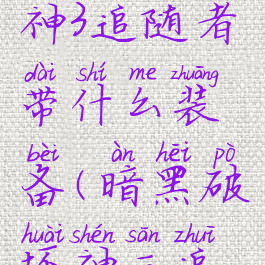 神3追随者
dài shí me zhuāng
带什么装
bèi àn hēi pò
备(暗黑破
huài shén sān zhuī
坏神三追